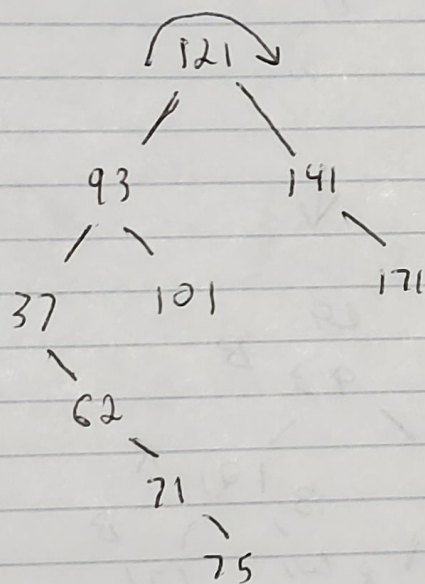 121
93 141
37 101 171
62
71
75